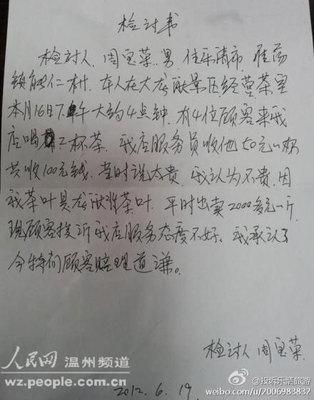 检讨书
检讨人，周宝荣，男，住乐清市 雁荡
镇能仁村。本人在大龙湫景区经营茶室
本月16日下午大约4点钟，有4位顾客来我
店喝2杯茶。我店服务员收他50元一杯
共收100元钱，当时说太贵，我认为不贵，因
我茶叶是龙湫背茶叶，平时出卖2000多元一斤，
现顾客投诉我店服务态度不好，我承认了
今特向顾客赔理道谦。
检讨人 周宝荣
2012. 6. 19.
人民网 温州频道
wz.people.com.cn
weibo.com/u/2006983832